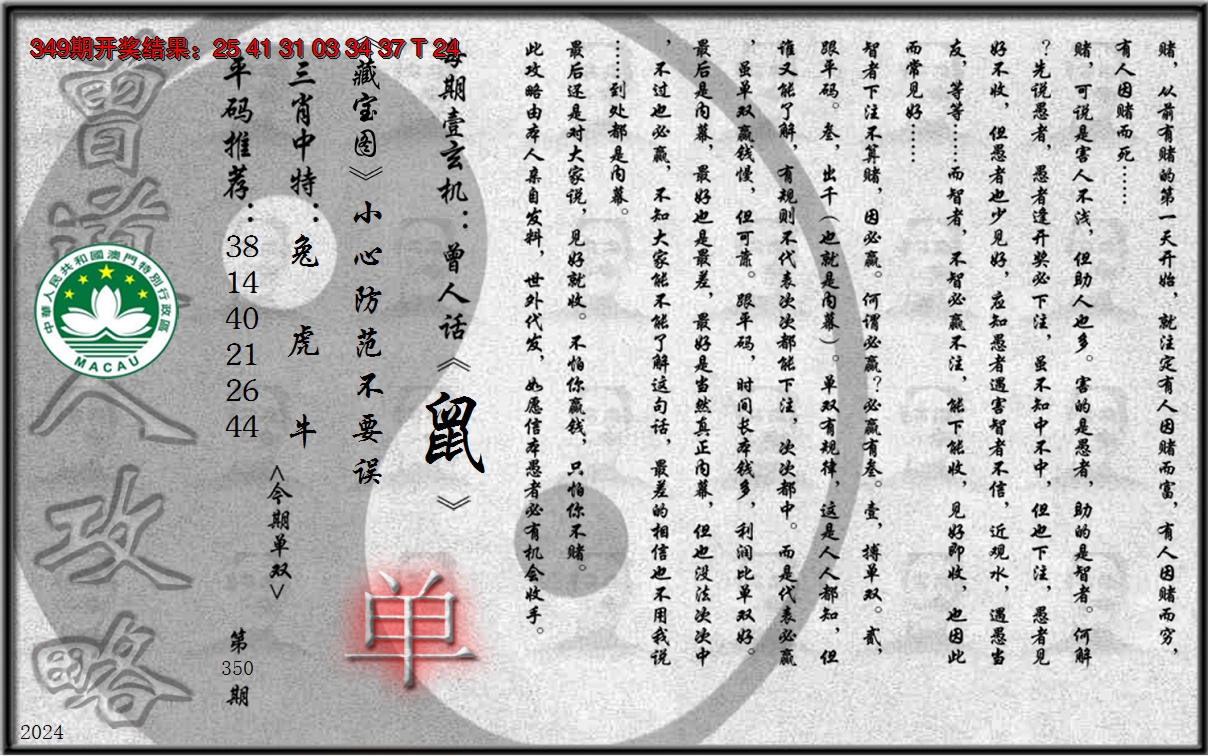 349期开奖结果：25 41 31 03 34 37 T 24
赌，从前有赌的第一天开始，就注定有人因赌而富，有人因赌而穷，
有人因赌而死……
赌，可说是害人不浅，但助人也多。害的是愚者，助的是智者。何解
？先说愚者，愚者逢开奖必下注，虽不知中不中，但也下注，愚者见
好不收，但愚者也少见好，应知愚者遇害智者不信，近观水，遇愚当
友，等等……而智者，不智必赢不注，能下能收，见好即收，也因此
而常见好……
智者下注不算赌，因必赢。何谓必赢？必赢有叁。壹，搏单双。贰，
跟平码。叁，出千（也就是内幕）。单双有规律，这是人人都知，但
谁又能了解，有规则不代表次次都能下注，次次都中。而是代表必赢
，虽单双赢钱慢，但可靠。跟平码，时间长本钱多，利润比单双好。
最后是内幕，最好也是最差，最好是当然真正内幕，但也没法次次中
，不过也必赢，不知大家能不能了解这句话，最差的相信也不用我说
……到处都是内幕。
最后还是对大家说，见好就收。不怕你赢钱，只怕你不赌。
此攻略由本人亲自发料，世外代发，如愿信本愚者必有机会收手。
每期壹玄机：曾人话《鼠》
《藏宝图》小心防范不要误
单
三肖中特：兔 虎 牛
<今期单双>
平码推荐：
38
14
40
21
26
44
第
350
期
曾道人攻略
中華人民共和國澳門特別行政區
MACAU
2024